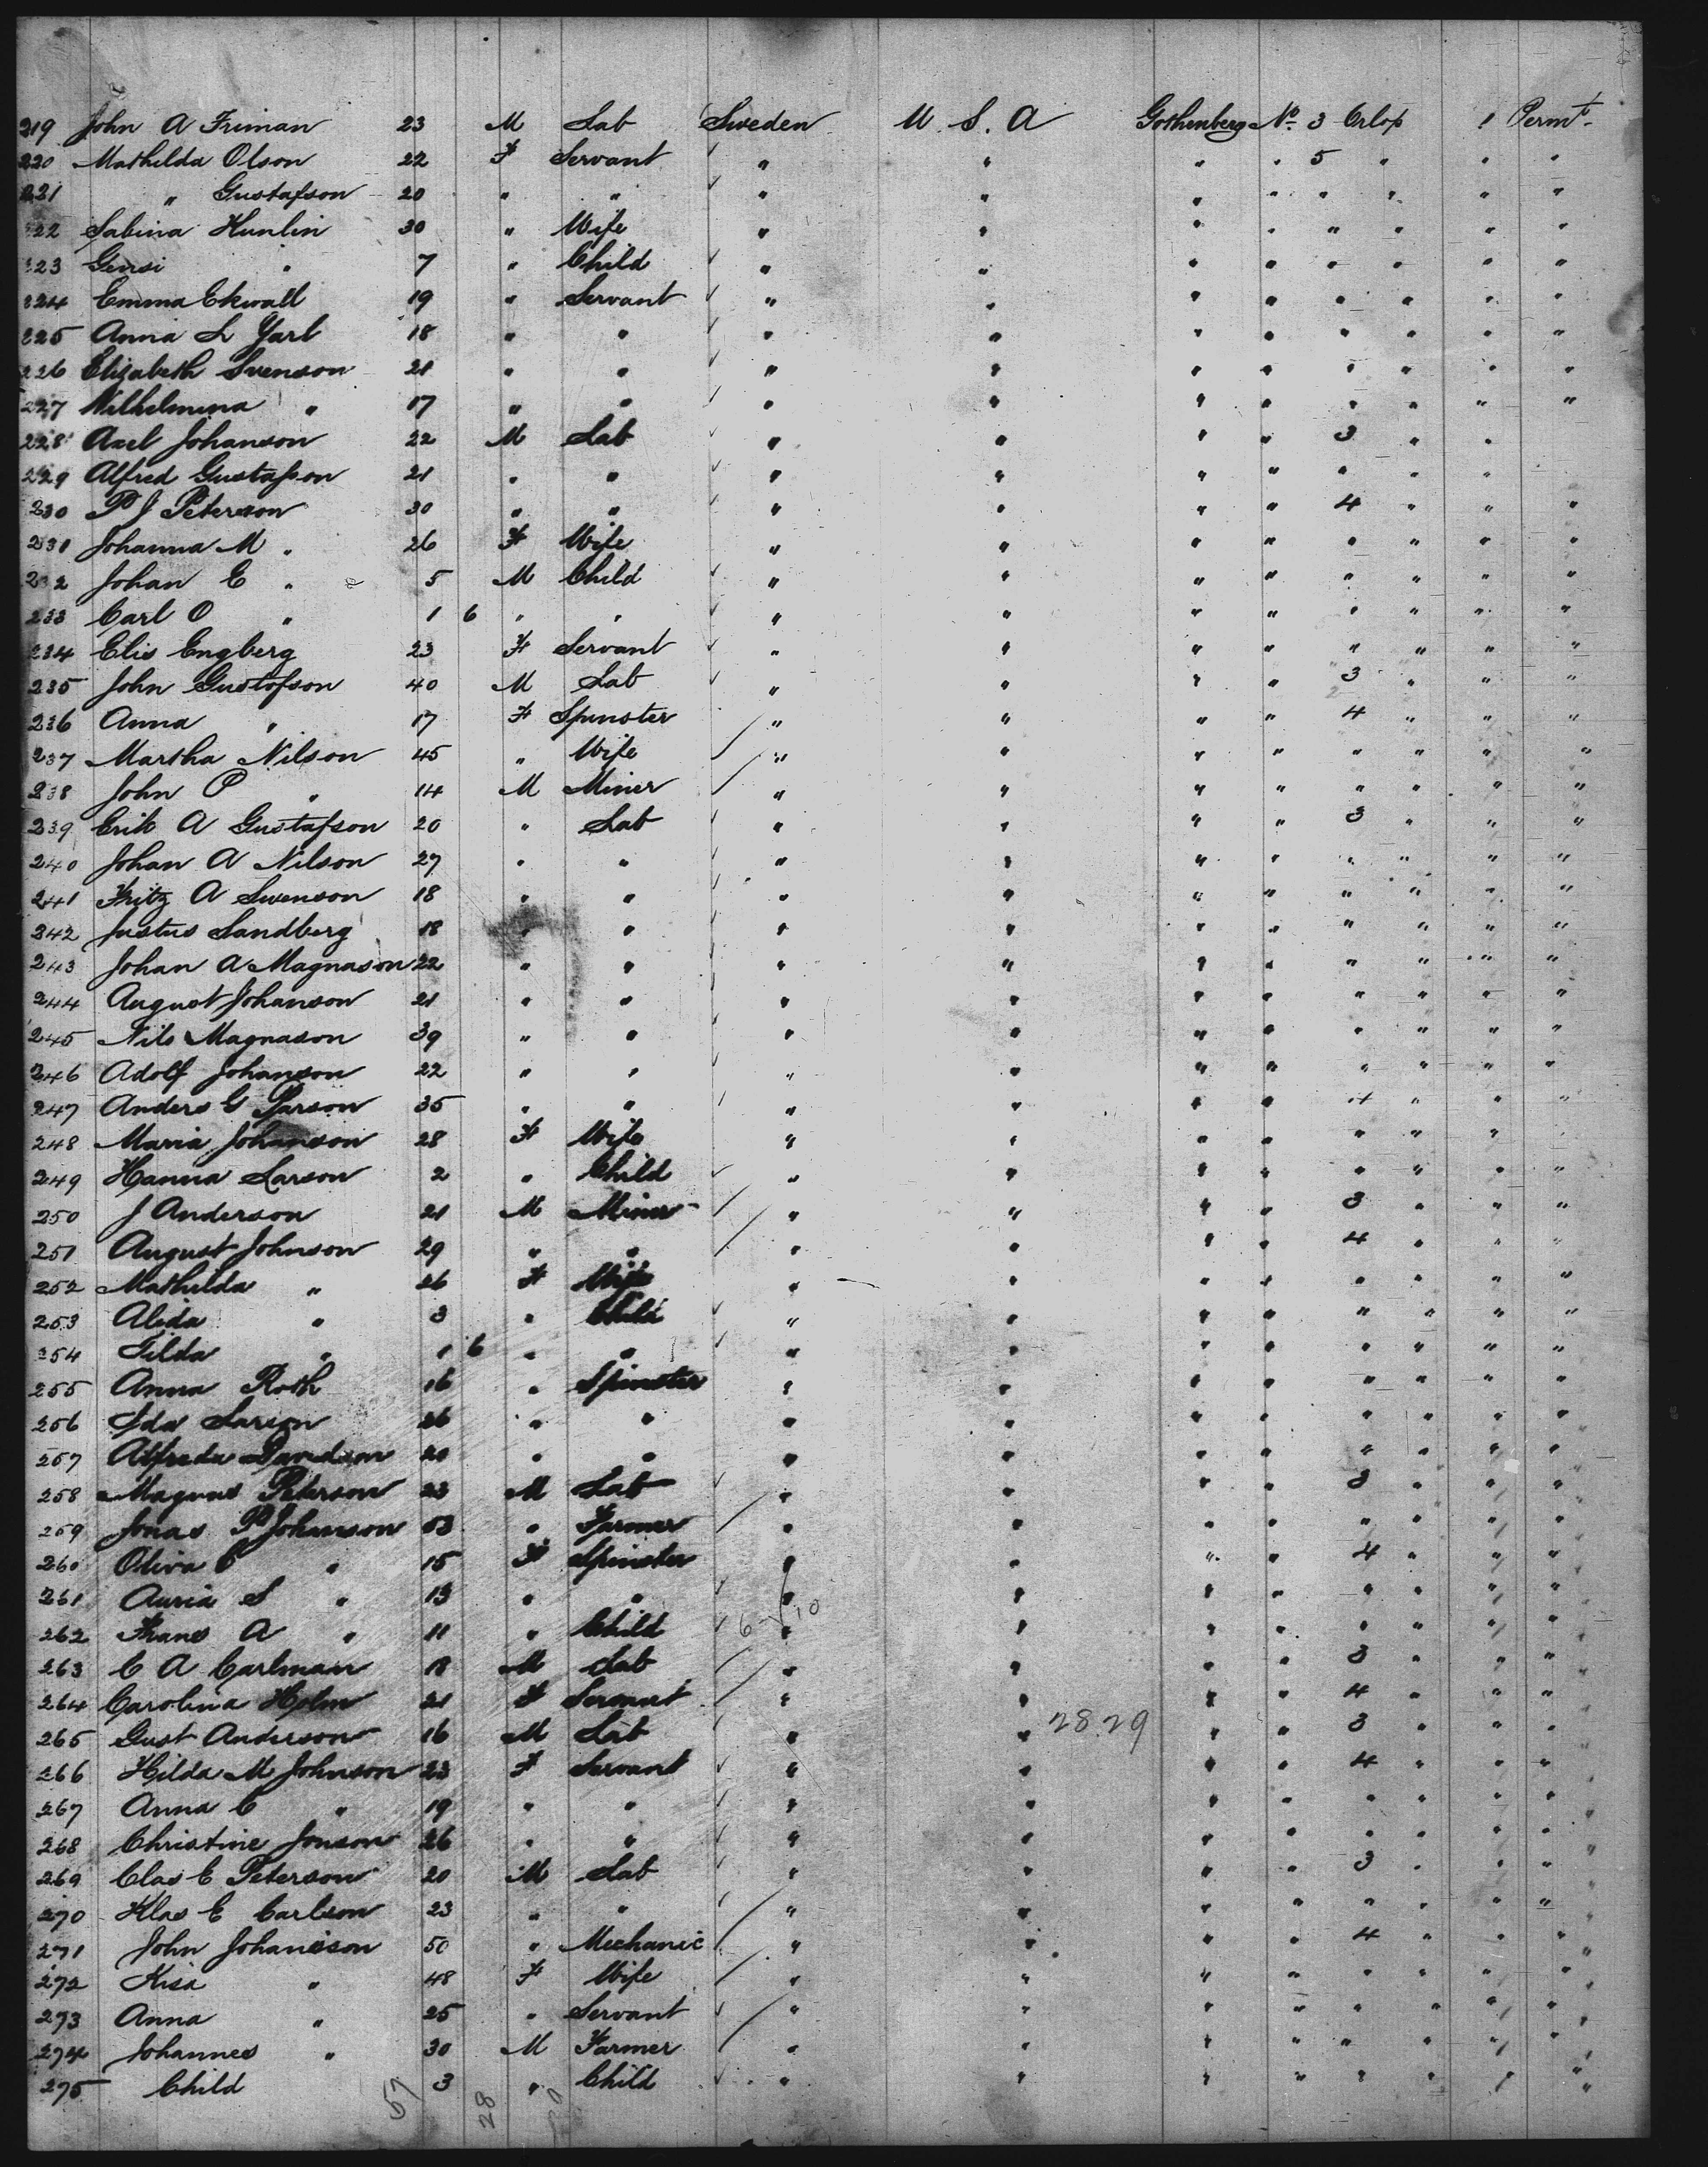 219 John A Friman 23 M Lab Sweden U. S. A Gothenberg No. 3 Orlop 1 Permt.
220 Mathilda Olson 22 F Servant " " " " 5 " " "
221 " Gustafson 20 " " " " " " " " " "
222 Sabina Hunlin 30 " Wife " " " " " " " "
223 Gensi " 7 " Child " " " " " " " "
224 Emma Ekwall 19 " Servant " " " " " " " "
225 Anna L Yarl 18 " " " " " " " " " "
226 Elizabeth Svenson 21 " " " " " " " " " "
227 Wilhelmina " 17 " " " " " " " " " "
228 Axel Johanson 22 M Lab " " " " 3 " "
229 Alfred Gustafson 21 " " " " " " " " "
230 P J Peterson 30 " " " " " " 4 " " "
231 Johanna M " 26 F Wife " " " " " " " "
232 Johan E " 5 M Child " " " " " " " "
233 Carl O " 1 6 " " " " " " " " " "
234 Elis Engberg 23 F Servant " " " " " " " "
235 John Gustofson 40 M Lab " " " " 3 " " "
236 Anna " 17 F Spinster " " " " 4 " " "
237 Martha Nilson 45 " Wife " " " " " " " "
238 John P " 14 M Miner " " " " " " " "
239 Erik A Gustafson 20 " Lab " " " " 3 " " "
240 Johan A Nilson 27 " " " " " " " " " "
241 Fritz A Swenson 18 " " " " " " " " " "
242 Justus Sandberg 18 " " " " " " " " " "
243 Johan A Magnason 22 " " " " " " " " " "
244 August Johanson 21 " " " " " " " " " "
245 Nils Magnason 39 " " " " " " " " " "
246 Adolf Johanson 22 " " " " " " " " " "
247 Anders G Parson 35 " " " " " " 4 " " "
248 Maria Johanson 28 F Wife " " " " " " " "
249 Hanna Larson 2 " Child " " " " " " " "
250 J Anderson 21 M Miner " " " " 3 " " "
251 August Johnson 29 " " " " " " 4 " " "
252 Mathilda " 26 F Wife " " " " " " " "
253 Alida " 3 " Child " " " " " " " "
254 Tilda " 1 6 " " " " " " " " " "
255 Anna Roth 16 " Spinster " " " " " " " "
256 Ida Larson 26 " " " " " " " " " "
257 Alfreda Davidson 20 " " " " " " " " " "
258 Magnus Peterson 23 M Lab " " " " 3 " " "
259 Jonas P Johanson 53 " Farmer " " " " " " " "
260 Oliva C " 15 F Spinster " " " " 4 " " "
261 Auria S " 13 " " " " " " " " " "
262 Frans A " 11 " Child 6 10 " " " " " " " "
263 C A Carlman 18 M Lab " " " " 3 " " "
264 Carolina Holm 21 F Servant " " " " 4 " " "
265 Gust Anderson 16 M Lab " " 28.29 " " 3 " " "
266 Hilda M Johnson 23 F Servant " " " " 4 " " "
267 Anna C " 19 " " " " " " " " " "
268 Christine Jonson 26 " " " " " " " " " "
269 Clas E Peterson 20 M Lab " " " " 3 " " "
270 Klas E Carlson 23 " " " " " " " " " "
271 John Johaneson 50 " Mechanic " " " " 4 " " "
272 Kisa " 48 F Wife " " " " " " " "
273 Anna " 25 " Servant " " " " " " " "
274 Johannes " 30 M Farmer " " " " " " " "
275 Child 3 " Child " " " " " " " "
57 28